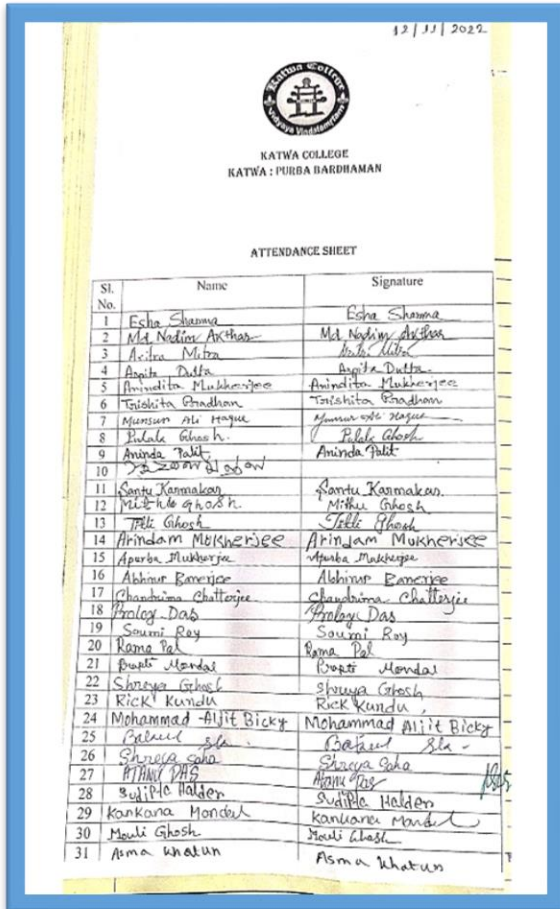 12/11/2022
Katwa College
Vidyaya Vindatamrtam
KATWA COLLEGE
KATWA : PURBA BARDHAMAN
ATTENDANCE SHEET
Sl. No. Name Signature
1 Esha Sharma Esha Sharma
2 Md Nadim Akthar Md Nadim Akthar
3 Aritra Mitra Mitra
4 Arpita Dutta Arpita Dutta.
5 Anindita Mukherjee Anindita Mukherjee
6 Trishita Pradhan Trishita Pradhan
7 Munsur Ali Haque Munsur Ali Haque
8 Pulak Ghosh. Pulak Ghosh
9 Aninda Palit. Aninda Palit
10
11 Santu Karmakar Santu Karmakar.
12 Mithu Ghosh. Mithu Ghosh
13 Titli Ghosh Titli Ghosh
14 Arindam Mukherjee Arindam Mukherjee
15 Apurba Mukherjee Apurba Mukherjee
16 Abhirup Banerjee Abhirup Banerjee
17 Chandrima Chatterjee Chandrima Chatterjee
18 Proloy Das Proloy Das
19 Soumi Roy Soumi Roy
20 Rama Pal Rama Pal
21 Prapti Mondal Prapti Mondal
22 Shreya Ghosh Shreya Ghosh
23 Rick Kundu Rick Kundu,
24 Mohammad Aljit Bicky Mohammad Aljit Bicky
25
26 Shreya Saha Shreya Saha
27 ATANU DAS Atanu Das
28 Sudipta Halder Sudipta Halder
29 Kankana Mondal Kankana Mondal
30 Mouli Ghosh Mouli Ghosh
31 Asma Khatun Asma Khatun